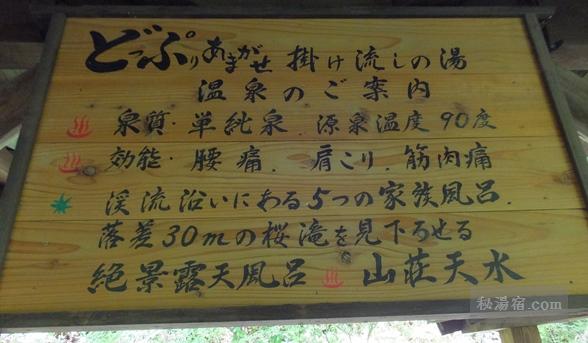 どっぷりあまがせ 掛け流しの湯
温泉のご案内
♨ 泉質・単純泉．源泉温度90度
♨ 効能・腰痛．肩こり．筋肉痛
渓流沿いにある5つの家族風呂．
落差30mの桜滝を見下ろせる
絶景露天風呂♨山荘天水
秘湯宿.com